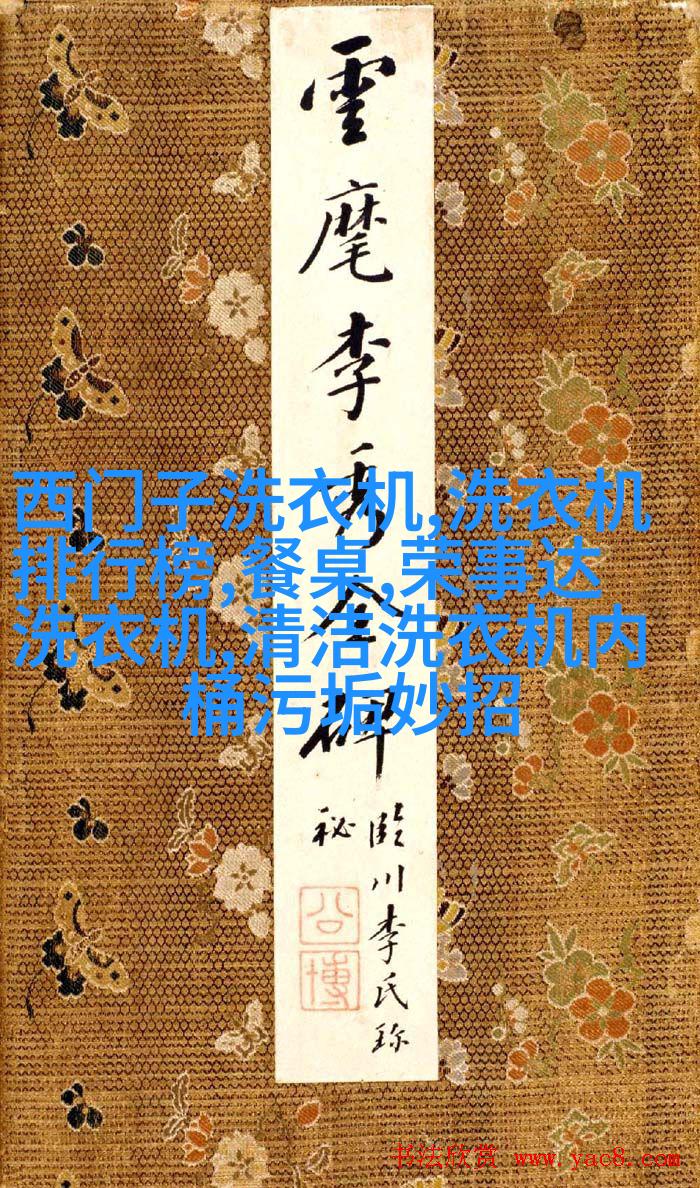 雲麾李秀全碑
臨川李氏珍
秘
公博
西门子洗衣机,洗衣机
排行榜,餐桌,荣事达
洗衣机,清洁洗衣机内
桶污垢妙招
书法欣赏 www.yac8.com